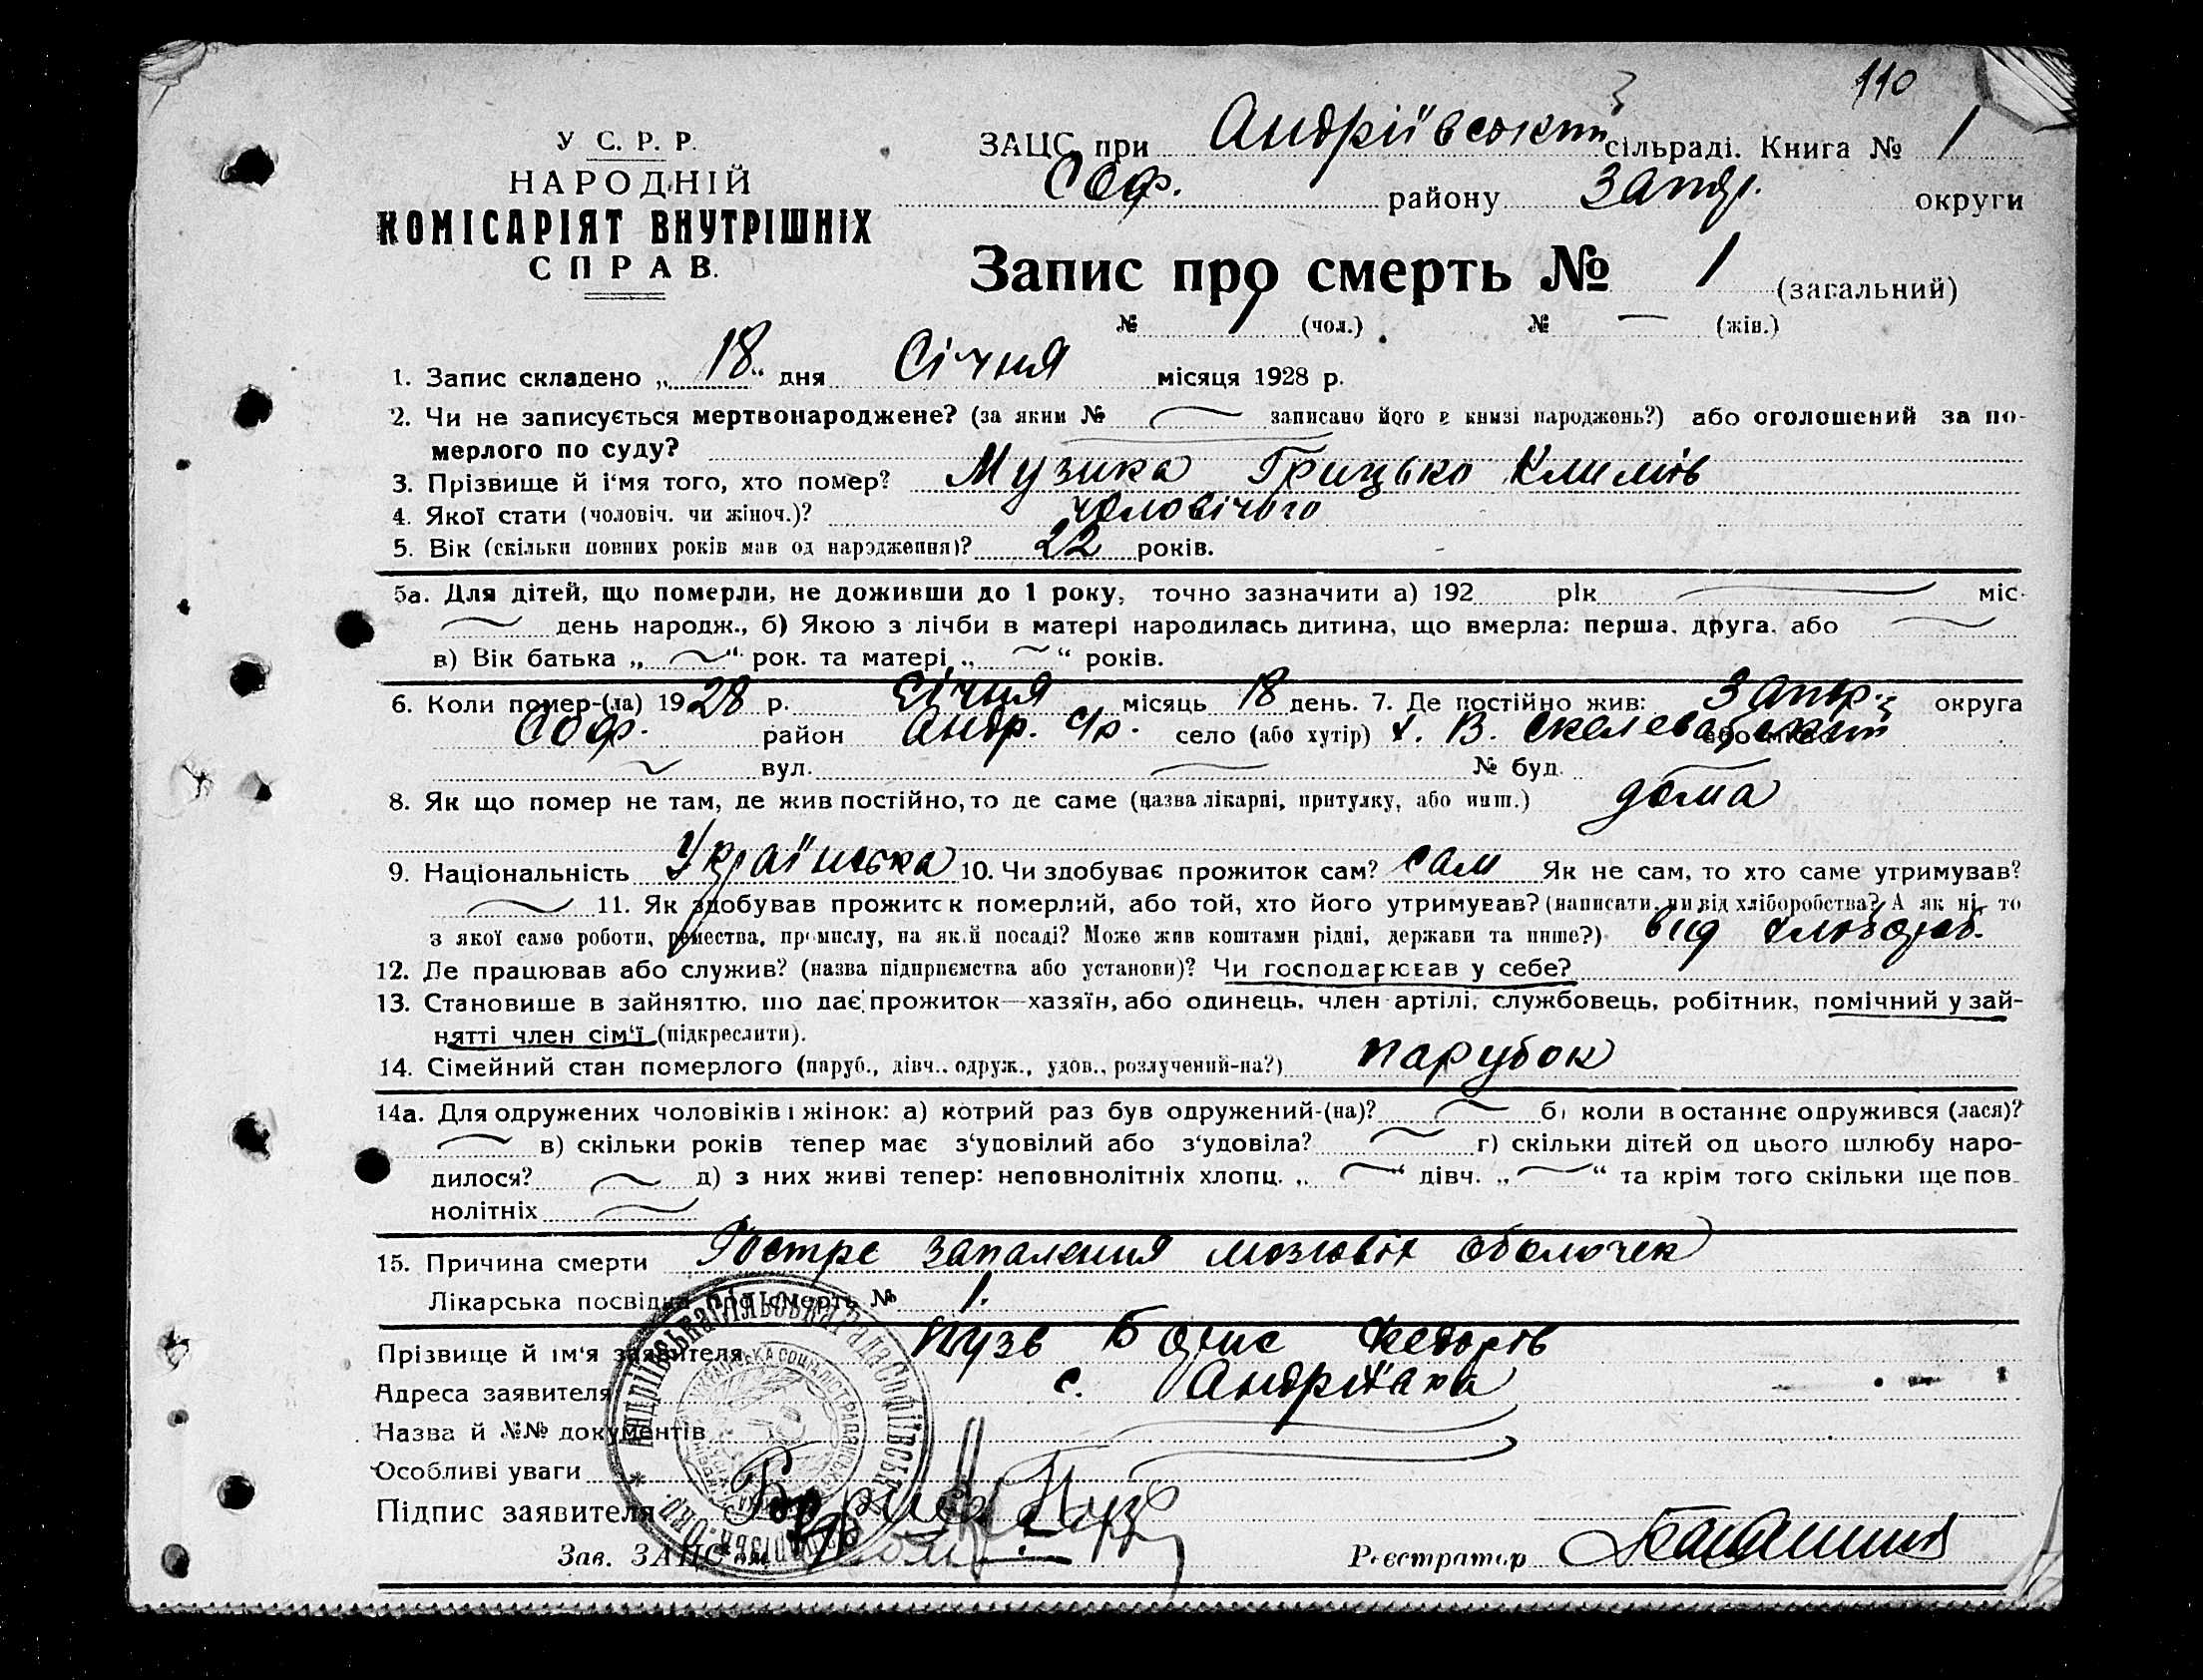 110
У С. Р. Р.
НАРОДНІЙ
КОМІСАРІЯТ ВНУТРІШНІХ
СПРАВ.
ЗАЦС при Андріївській сільраді. Книга № 1
Соф. району Запор. округи
Запис про смерть № 1 (загальний)
№ 1 (чол.) № — (жін.)
1. Запис складено „18“ дня Січня місяця 1928 р.
2. Чи не записується мертвонароджене? (за яким № записано його в книзі народжень?) або оголошений за по-
мерлого по суду?
3. Прізвище й ім'я того, хто помер? Музика Грицько Климів
4. Якої стати (чоловіч. чи жіноч.)? чоловічого
5. Вік (скільки повних років мав од народження)? 22 років.
5а. Для дітей, що померли, не доживши до 1 року, точно зазначити а) 192 рік міс.
день народж., б) Якою з лічби в матері народилась дитина, що вмерла: перша, друга, або
в) Вік батька „ “ рок. та матері „ “ років.
6. Коли помер-(ла) 1928 р. Січня місяць 18 день. 7. Де постійно жив: Запор. округа
Соф. район Андр. с/р. село (або хутір) х. В.
вул. № буд.
8. Як що помер не там, де жив постійно, то де саме (назва лікарні, притулку, або инш.) дома
9. Національність Українська 10. Чи здобуває прожиток сам? сам Як не сам, то хто саме утримував?
11. Як здобував прожиток померлий, або той, хто його утримував? (написати, чи від хліборобства? А як ні, то
з якої само роботи, ремества, промислу, на якій посаді? Може жив коштами рідні, держави та инше?) від хлібороб.
12. Де працював або служив? (назва підприємства або установи)? Чи господарював у себе?
13. Становище в зайняттю, що дає прожиток—хазяїн, або одинець, член артілі, службовець, робітник, помічний у зай-
нятті член сім'ї (підкреслити).
14. Сімейний стан померлого (паруб., дівч., одруж., удов., розлучений-на?) парубок
14а. Для одружених чоловіків і жінок: а) котрий раз був одружений-(на)? б) коли в останнє одружився (лася)?
в) скільки років тепер має з'удовілий або з'удовіла? г) скільки дітей од цього шлюбу наро-
дилося? д) з них живі тепер: неповнолітніх хлопц. „ “ дівч. „ “ та крім того скільки ще пов-
нолітніх
15. Причина смерти Гостре запалення мозговіх оболочек
Лікарська посвідка про смерть № 1.
Прізвище й ім'я заявителя Пузь Борис Федорів
Адреса заявителя с. Андріївка
Назва й №№ документів
Особливі уваги
Підпис заявителя Борис Пузь
Зав. ЗАЦС'ом Реєстратор
Андріївська Сільська Рада Софіївськ